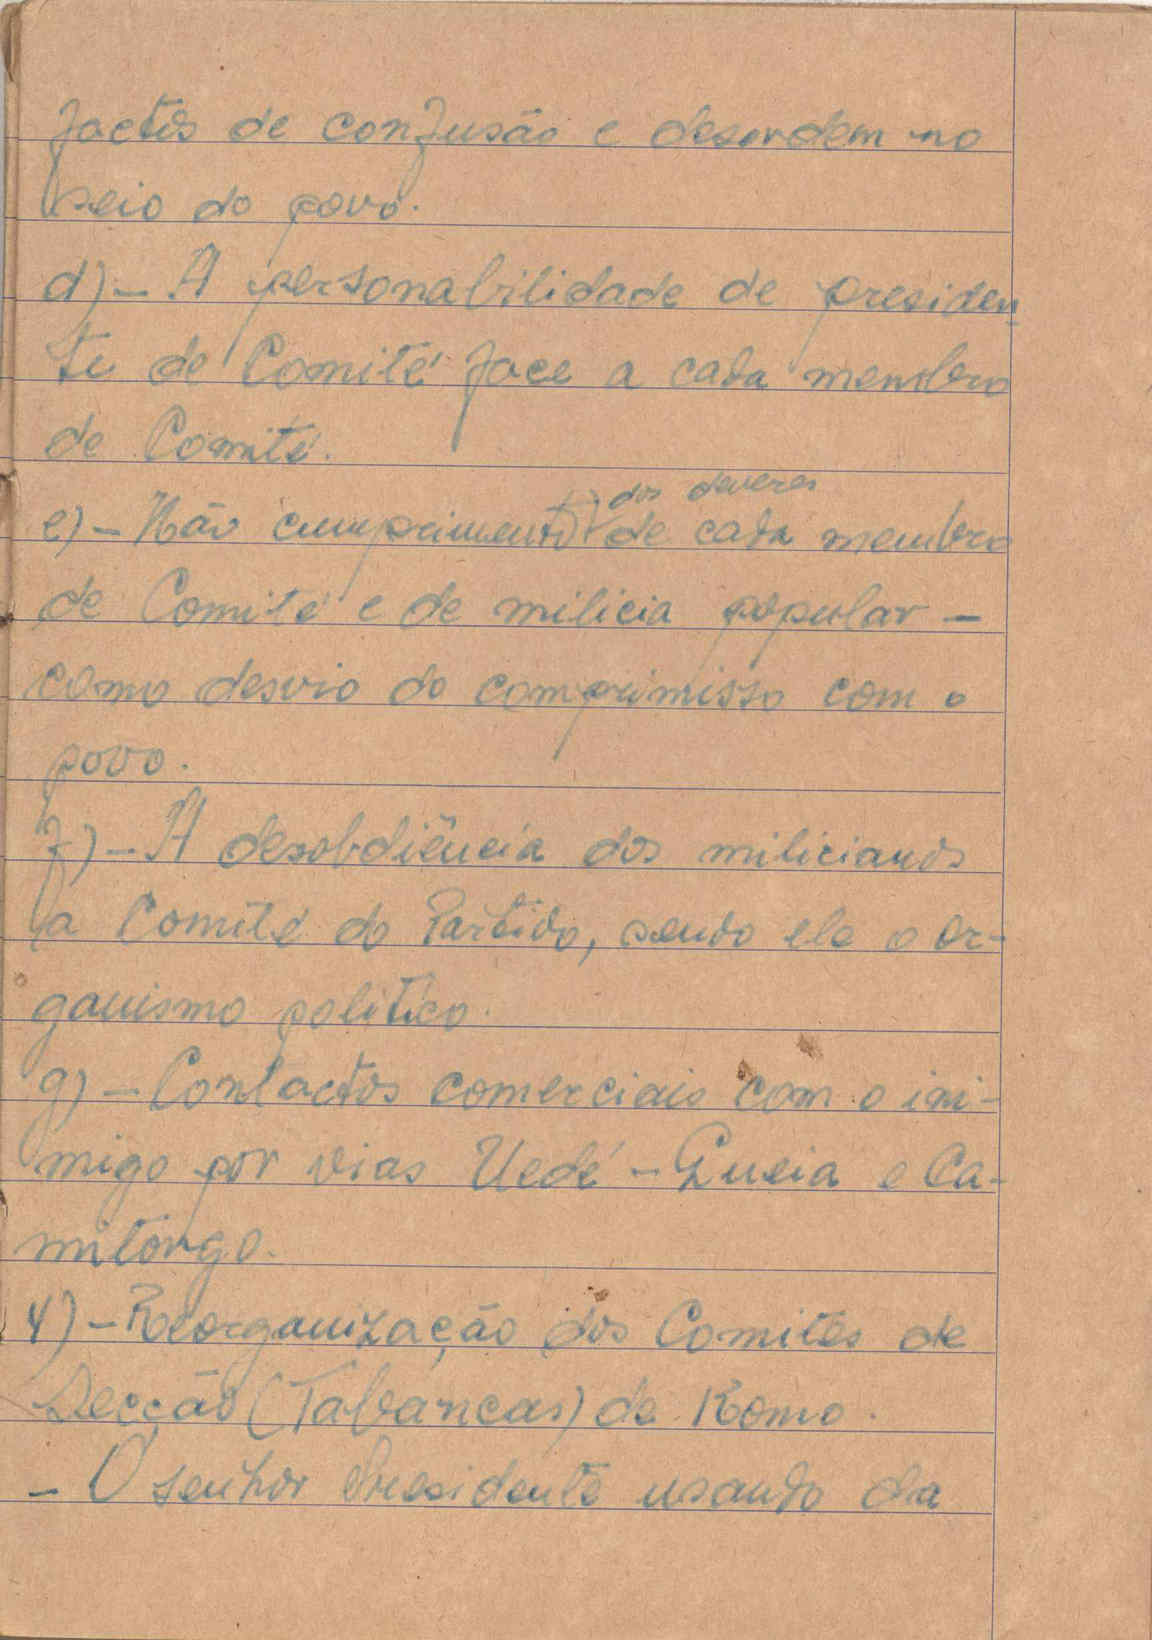 factos de confusão e desordem no
seio do povo.
d) - A personabilidade de presiden-
te de Comité face a cada membro
de Comité.
dos deveres
e) - Não cumprimento de cada membro
de Comité e de milicia popular -
como desvio do comprimisso com o
povo.
f) - A desobdiência dos milicianos
a Comité do Partido, sendo ele o or-
ganismo politico.
g) - Contactos comerciais com o ini-
migo por vias Uedé - Gueia e Ca-
mitongo.
4) - Reorganização dos Comités de
Secção (Tabancas) de Komo.
- O senhor Presidente usando da